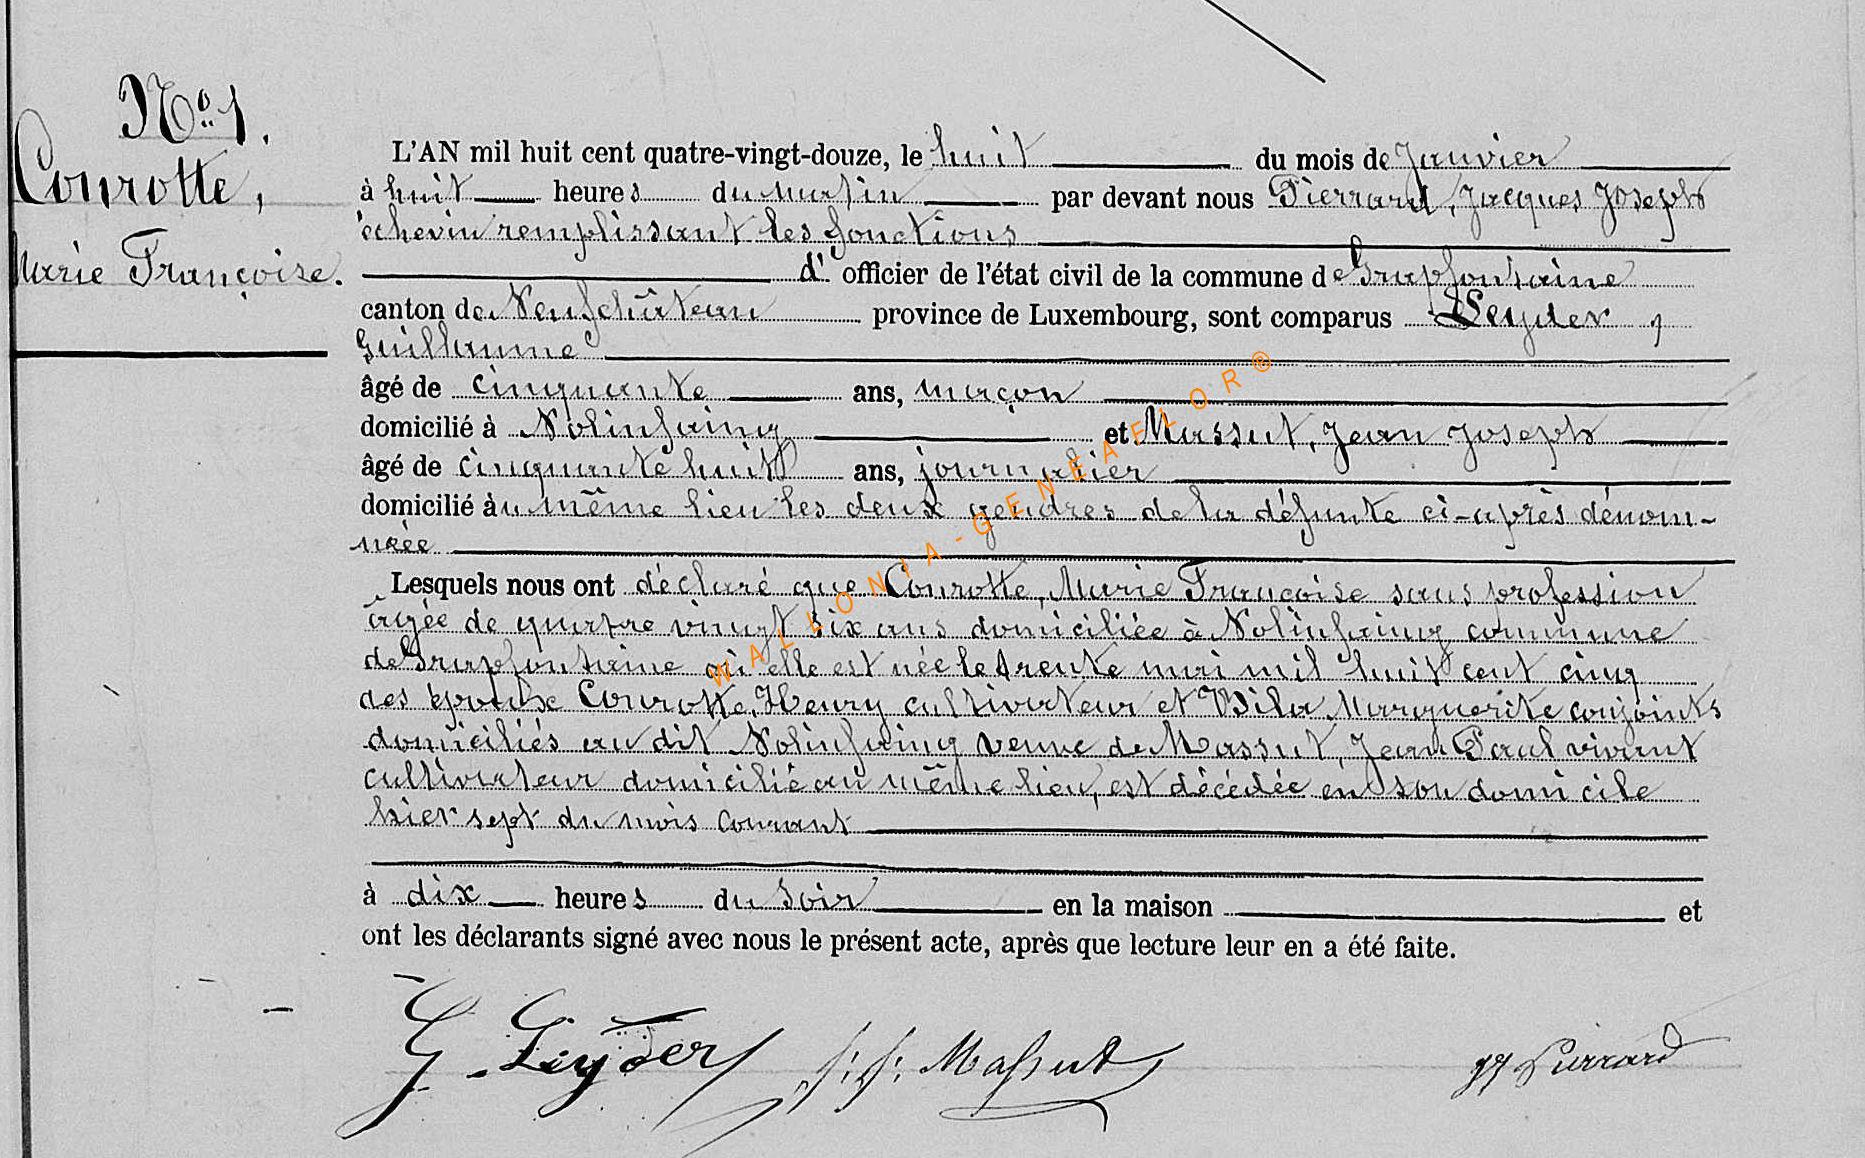 No. 1.
Courotte,
Marie Françoise.
L'AN mil huit cent quatre-vingt-douze, le huit du mois de Janvier
à huit heures du matin par devant nous Pierrard, Jacques Joseph
échevin remplissant les fonctions
d' officier de l'état civil de la commune de Grapfontaine
canton de Neufchâteau province de Luxembourg, sont comparus Leyder,
Guillaume
âgé de cinquante ans, maçon
domicilié à Nolinfaing et Massut, Jean Joseph
âgé de cinquante huit ans, journalier
domicilié au même lieu les deux gendres de la défunte ci-après dénom-
mée
Lesquels nous ont déclaré que Courotte, Marie Françoise sans profession
âgée de quatre vingt six ans domiciliée à Nolinfaing commune
de Grapfontaine où elle est née le trente mai mil huit cent cinq
des époux Courotte, Henry cultivateur et Bila Marguerite conjoints
domiciliés au dit Nolinfaing veuve de Massut, Jean Paul vivant
cultivateur domicilié au même lieu, est décédée en son domicile
hier sept du mois courant
à dix heures du soir en la maison et
ont les déclarants signé avec nous le présent acte, après que lecture leur en a été faite.
G. Leyder J. J. Massut JJ Pierrard
WALLONIA-GENEAFLOR®